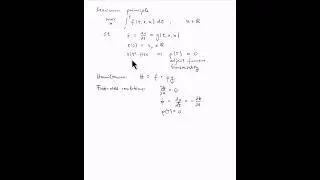 Maximum principle
max ∫ f(t,x,u) dt , u ∈ R
u
s.t. ẋ = dx/dt = g(t,x,u)
x(0) = x₀ ∈ R
x(T) free ⇒ p(T) = 0
adjoint function
transversality
Hamiltonian H = f + pg
First-order conditions: ∂H/∂u = 0
ṗ = dp/dt = -∂H/∂x
p(T) = 0